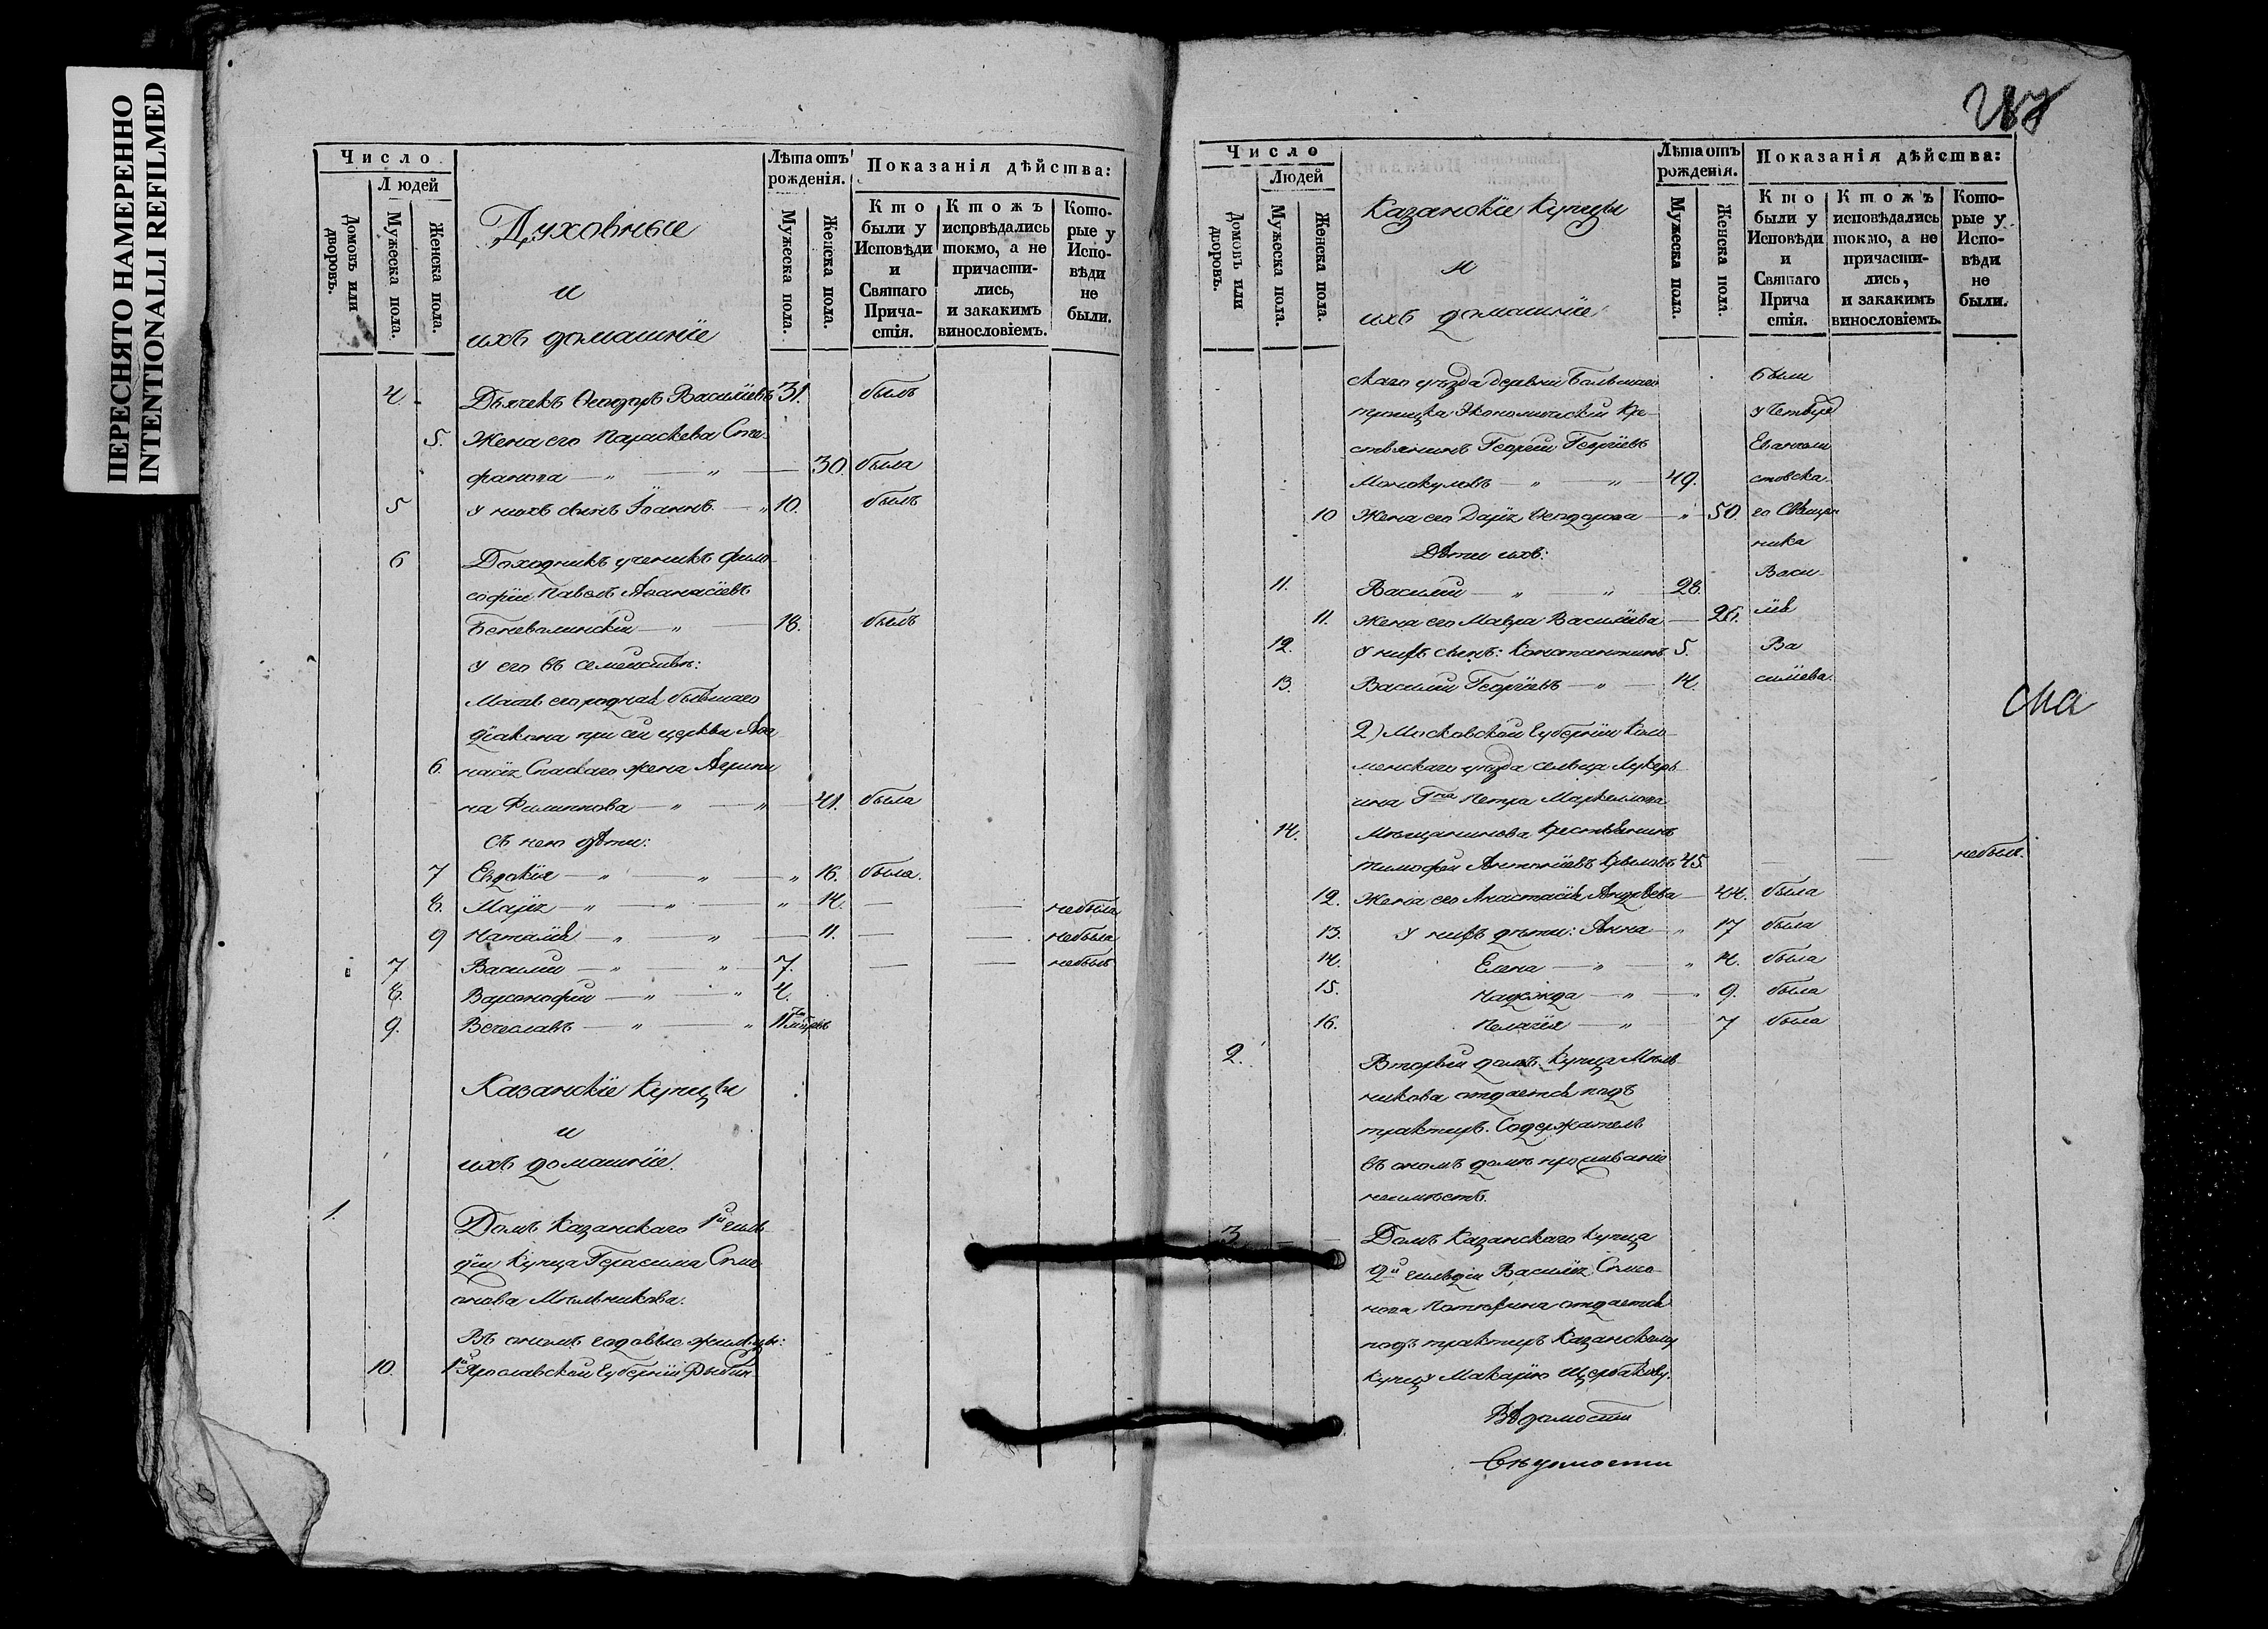 ПЕРЕСНЯТО НАМЕРЕННО
INTENTIONALLI REFILMED
Число
Людей
Домовъ или дворовъ.
Мужеска пола.
Женска пола.
Духовные
и
ихъ домашніе
Лѣта отъ рожденія.
Мужеска пола.
Женска пола.
Показанія дѣйства:
Кто были у Исповѣди и Святаго Прича-стія.
Ктожъ исповѣдались токмо, а не причасти-лись, и закакимъ винословіемъ.
Кото-рые у Испо-вѣди не были.
4. Дьячекъ Ѳеодоръ Василіевъ 31. былъ
5. Жена его Параскева Сте-
фанова — „ — „ — 30. была
5 У нихъ сынъ Іоаннъ — „ 10. былъ
6 Доходникъ ученикъ фило-
софіи Павелъ Аѳанасіевъ
Беневалинскій — „ — 18. былъ
У его въ семействѣ:
Мать его родная бывшаго
діакона при сей церкви Аѳа-
6. насія Спаскаго жена Агрипи
на Филиппова — „ — „ — 41. была
Съ нею дѣти:
7 Евдокія — „ — „ — „ 16. была.
8. Марія — „ — „ — „ 14. — — небыла
9 Наталія — „ — „ — 11. — — небыла
7 Василій — „ — „ — 7. — — небылъ
8. Варсонофій — „ — „ 4.
9. Вечеславъ — „ — „ 11
Казанскіе Купцы
и
ихъ домашніе.
1. Домъ Казанскаго 1й гиль-
діи Купца Герасима Симе
онова Мѣльникова.
Въ ономъ годовые жильцы:
10. 1й Ярославской Губерніи Рыбин-
Число
Людей
Домовъ или дворовъ.
Мужеска пола.
Женска пола.
Казанскіе Купцы
и
ихъ домашніе
Лѣта отъ рожденія.
Мужеска пола.
Женска пола.
Показанія дѣйства:
Кто были у Исповѣди и Святаго Прича стія.
Ктожъ исповѣдались токмо, а не причасти-лись, и закакимъ винословіемъ.
Кото-рые у Испо-вѣди не были.
скаго уѣзда деревни Большаго были
Экономическій Кре- у Четвер
стьянинъ Георгій Георгіевъ Евангели
Монокуловъ — „ — „ — 49. стовска-
10 Жена его Дарія Ѳеодорова — „ — 50. го Священ
Дѣти ихъ: ника
11. Василій — „ — „ — 28. Васи-
11. Жена его Мавра Василіева — 26. лія
12. У нихъ сынъ: Константинъ 5. Ва
13. Василій Георгіевъ — „ — 14. силіева.
2) Московской Губерніи Коло-
менскаго уѣзда сельца Лукерь
ина Гна Петра Маркеллова
14. Мѣщанинова Крестьянинъ
Тимофей Антоніевъ Крыловъ 45. — — небылъ.
12. Жена его Анастасія Андреева — 44. была
13. У нихъ дѣти: Анна — „ 17 была
14. Елена — „ — „ 14. была
15. Надежда — „ — „ 9. была
16. Пелагія — „ — 7 была
2. Вторый домъ Купца Мѣль-
никова отдается подъ
трактиръ. Содержатель
въ ономъ домѣ проживанія
неимѣетъ.
3 Домъ Казанскаго Купца
2й гильдіи Василія Симо-
нова отдается
подъ трактиръ Казанскому
Купцу Макарію Щербакову.
Вѣдомости